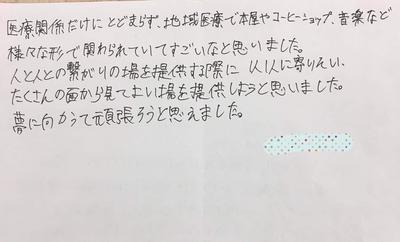 医療関係だけにとどまらず、地域医療で本屋やコーヒーショップ、音楽など
様々な形で関わられていてすごいなと思いました。
人と人との繋がりの場を提供する際に 1人1人に寄りそい、
たくさんの面から見てよい場を提供しようと思いました。
夢に向かって頑張ろうと思えました。